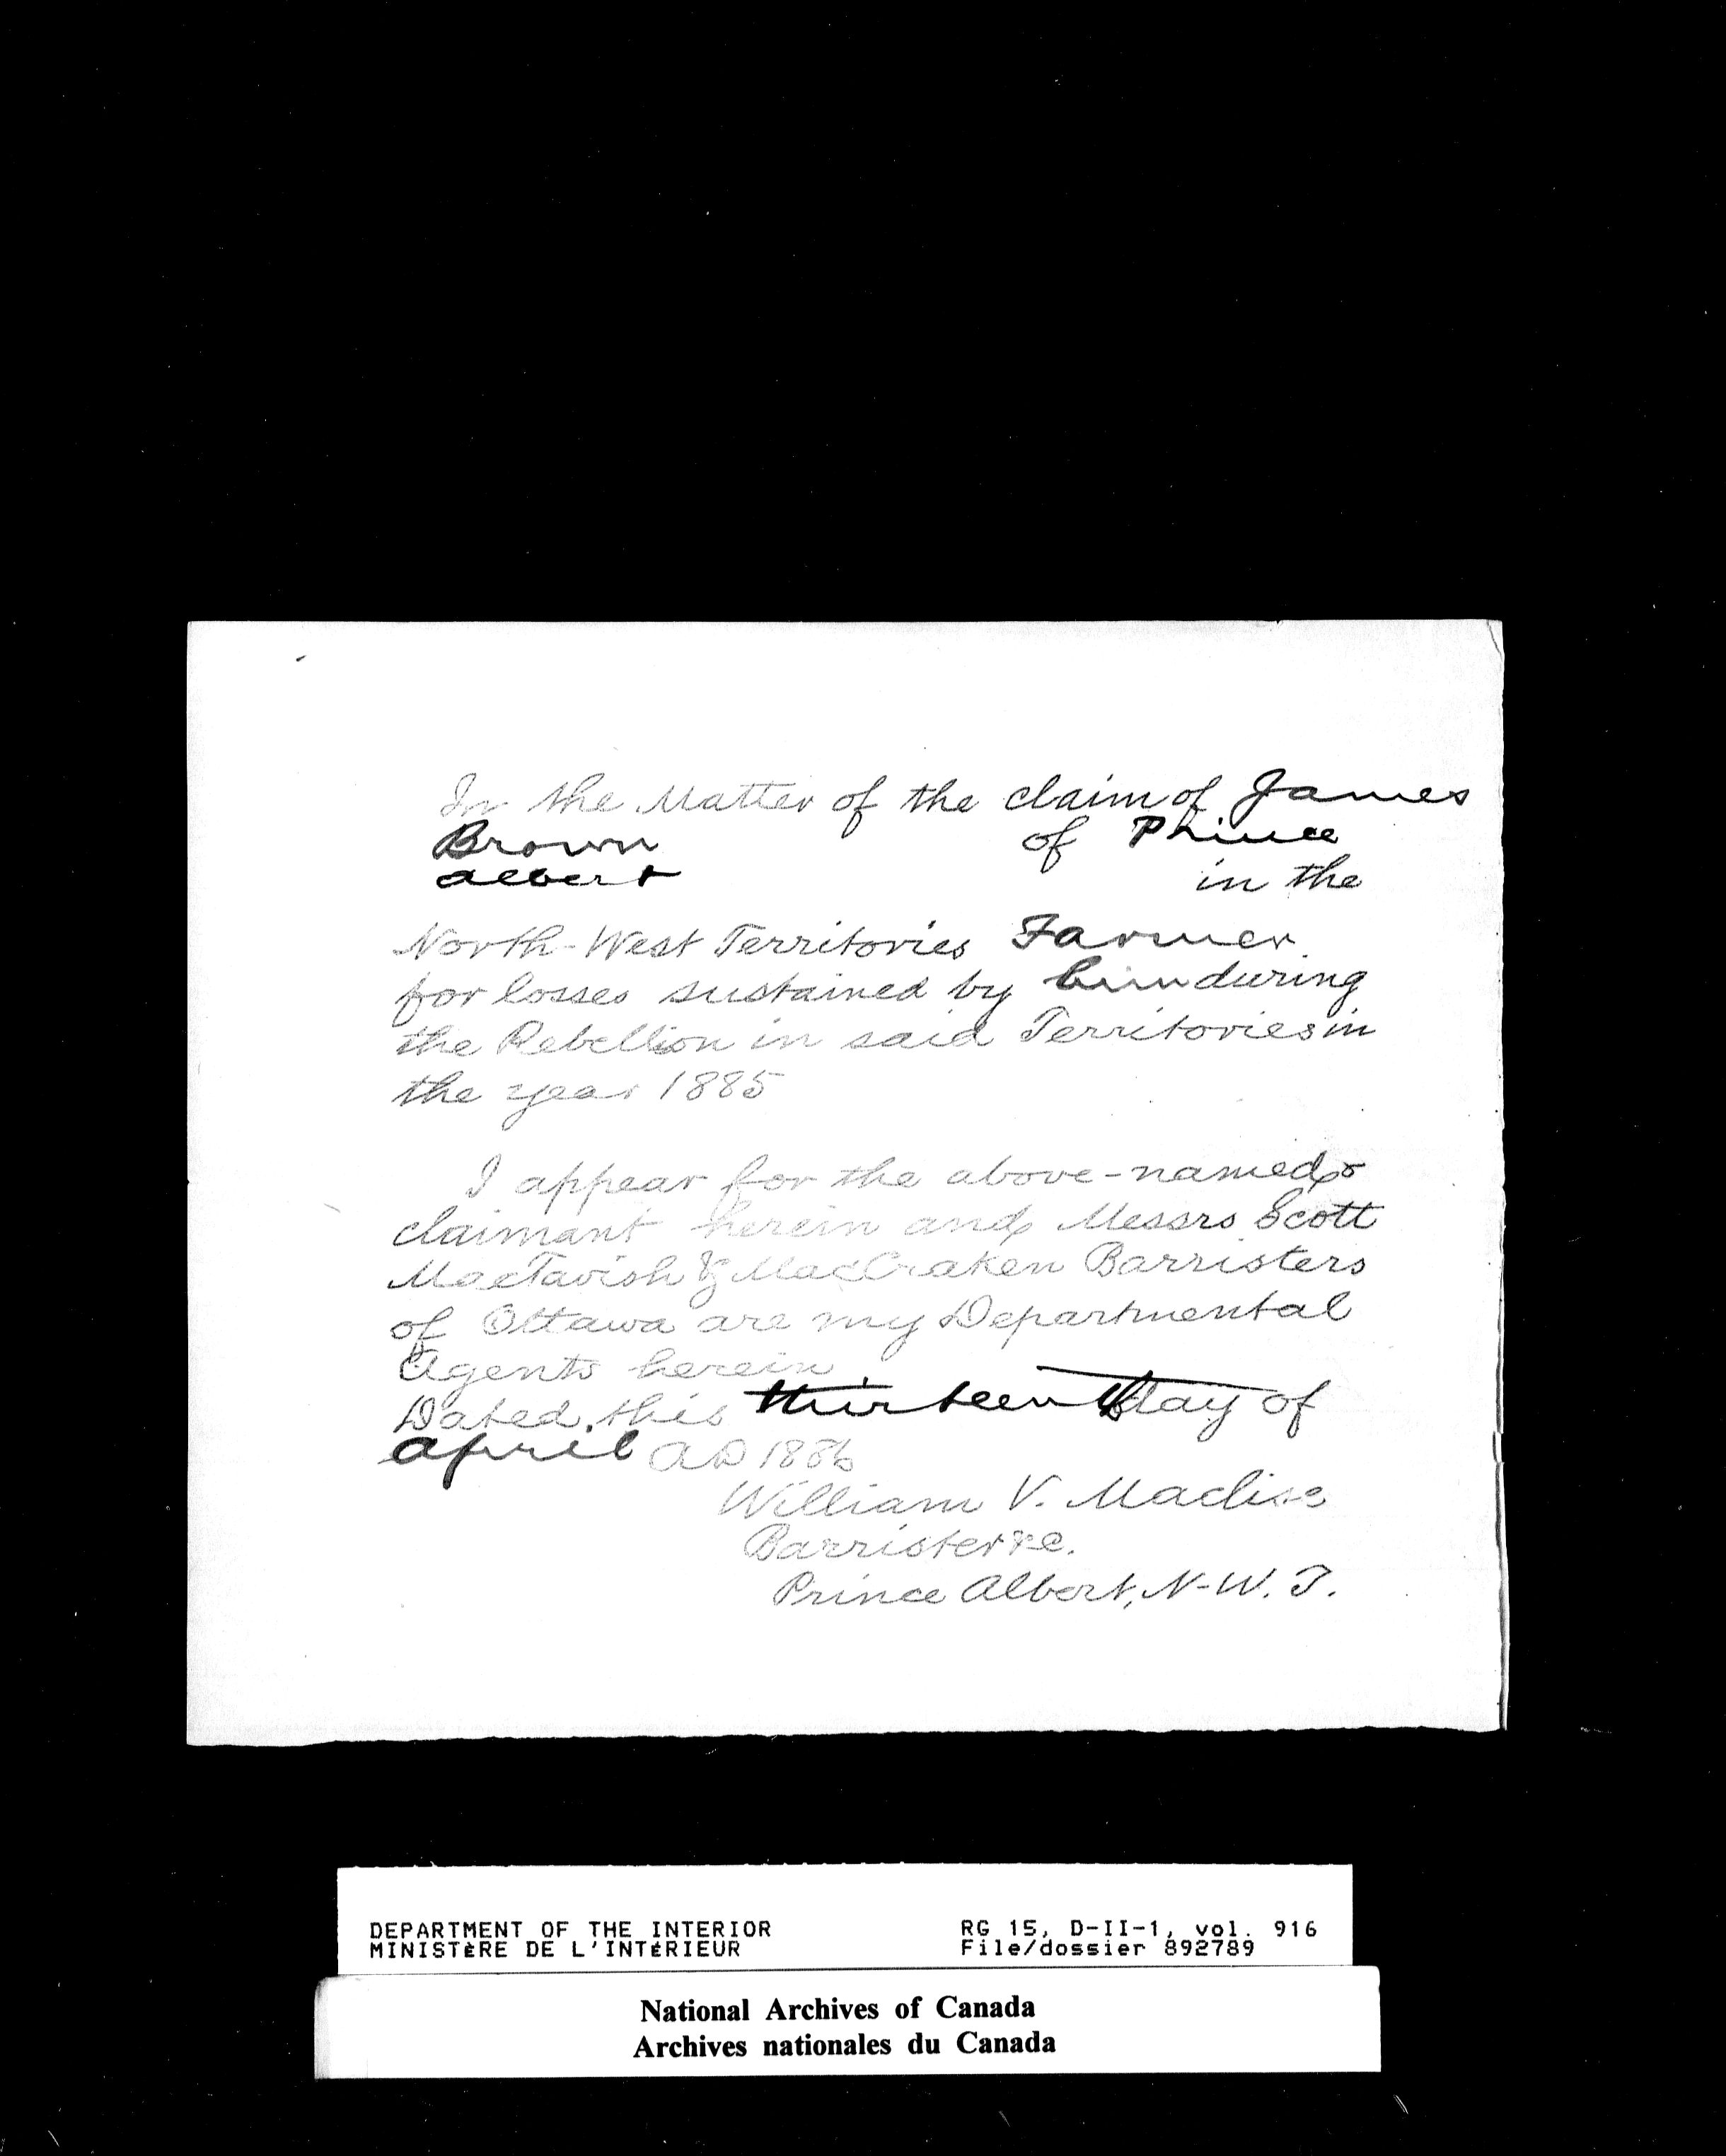 In the Matter of the claim of James
Brown of Prince
Albert in the
North-West Territories Farmer
for losses sustained by him during
the Rebellion in said Territories in
the year 1885
I appear for the above-named
claimant herein and Messrs Scott
MacTavish & MacCraken Barristers
of Ottawa are my Departmental
Agents herein
Dated this thirteenth day of
April AD 1886
William V. Maclise
Barrister &c.
Prince Albert, N-W. T.
DEPARTMENT OF THE INTERIOR RG 15, D-II-1, vol. 916
MINISTÈRE DE L'INTÉRIEUR File/dossier 892789
National Archives of Canada
Archives nationales du Canada